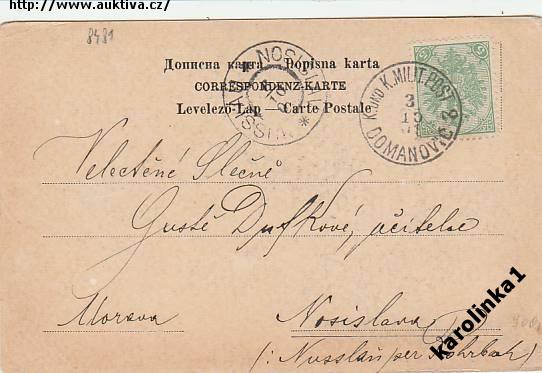 http://www.auktiva.cz/
8481
Дописна карта — Dopisna karta
CORRESPONDENZ-KARTE
Levelező-Lap — Carte Postale
NOSISLAV
K.UND K.MILIT.POST
3
15
DOMANOVIĆ
5
Velectěné Slečně
Gustě Dufkové, učitelce
Morava
Nosislava
(: Nusslau per Rohrbach)
karolinka1